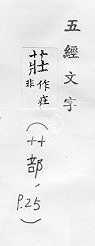 五經文字
莊
作庄
非
(艹部,
P.25)